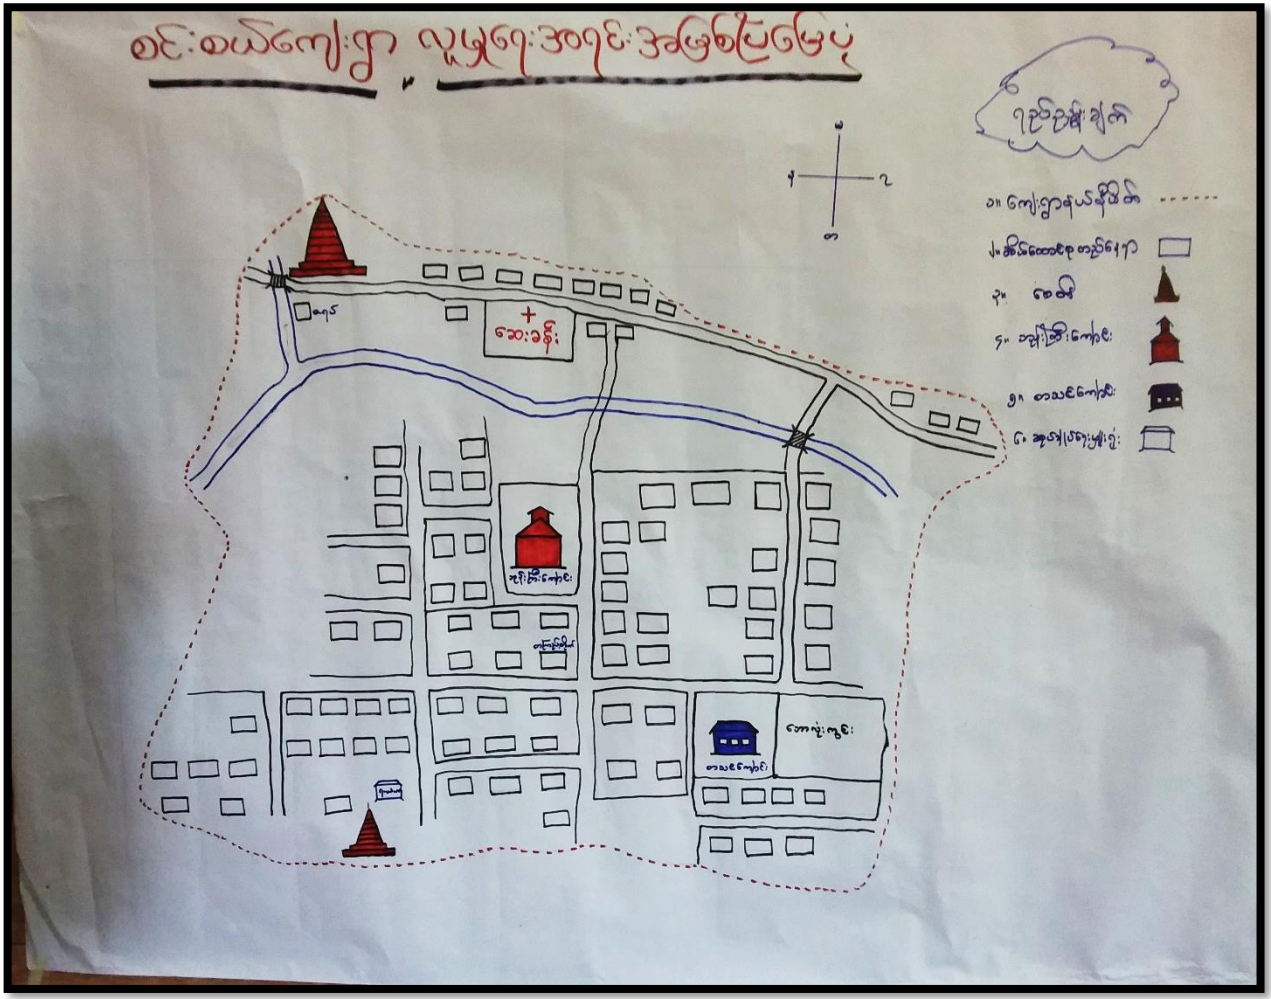 စင်းစယ်ကျေးရွာ ၊ လူမှုရေးအရင်းအမြစ်ပြမြေပုံ
ရည်ညွှန်းချက်
မ
န
တ
၁။ ကျေးရွာနယ်နိမိတ်
၂။ အိမ်ထောင်စုတည်နေရာ
၃။ စေတီ
၄။ ဘုန်းကြီးကျောင်း
၅။ စာသင်ကျောင်း
၆။ အုပ်ချုပ်ရေးမှူးရုံး
ဇရပ်
ဆေးခန်း
ဘုန်းကြီးကျောင်း
ဘောလုံးကွင်း
စာသင်ကျောင်း